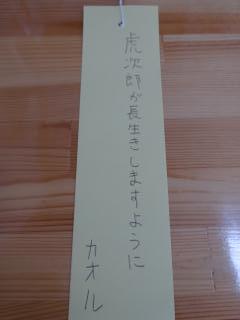 虎次郎が長生きしますように
カオル